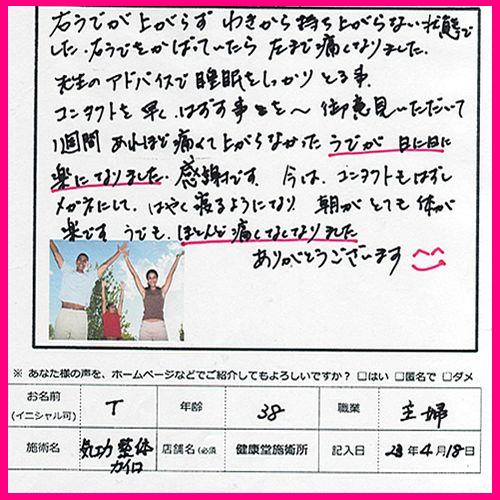 右うでが上がらず わきから持ち上がらない状態で
した。右うでをかばっていたら 左まで痛くなりました。
先生のアドバイスで睡眠をしっかり とる事、
コンタクトを 早く はずす事とを〜 御意見いただいて
1週間 あれほど痛くて上がらなかった うでが 日に日に
楽になりました。感謝です。今は、コンタクトもはずし
メガネにして、はやく寝るようになり 朝がとても 体が
楽です うでも、ほとんど痛くなくなりました
ありがとうございます
※ あなた様の声を、ホームページなどでご紹介してもよろしいですか? □はい □匿名で □ダメ
お名前
(イニシャル可) T 年齢 38 職業 主婦
施術名 気功 整体 カイロ 店舗名(必須 健康堂施術所 記入日 23年4月18日